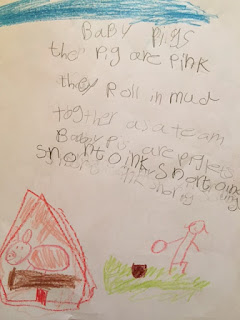 Baby Pigs
the pig are pink
they Roll in mud
together as a team
Babby Pig are Piglets
snort oink snort oink